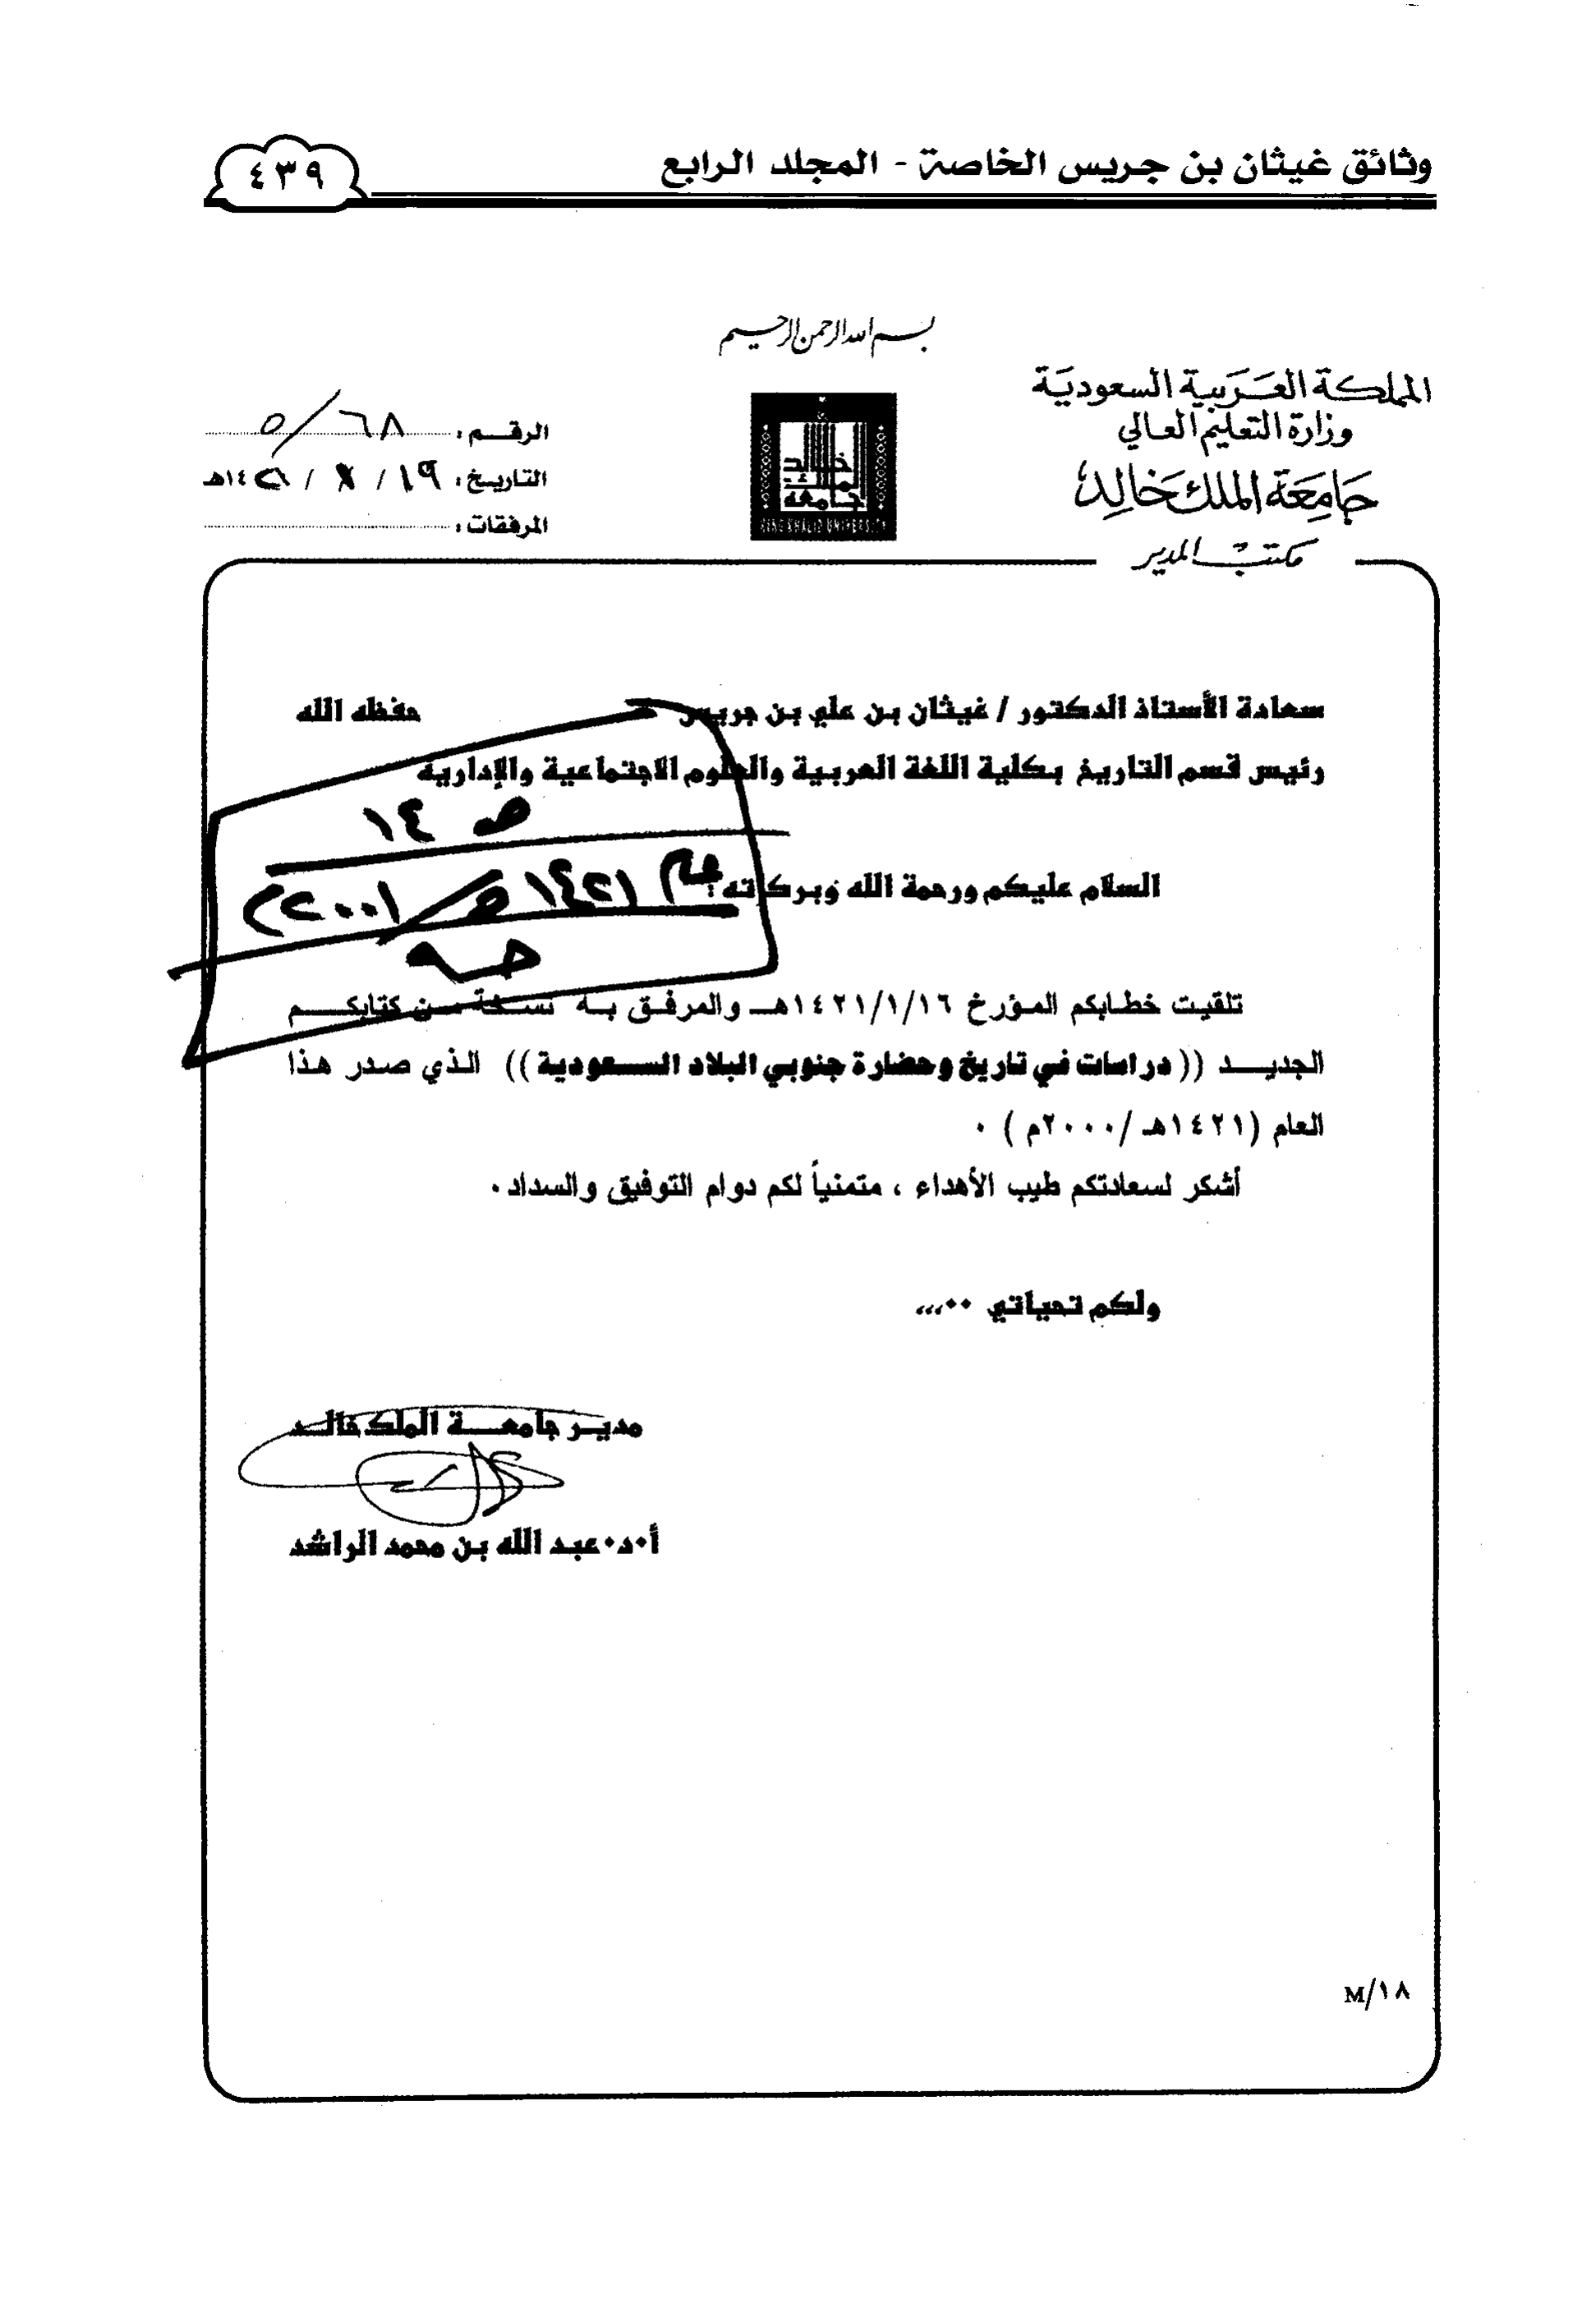 وثائق غيثان بن جريس الخاصة - المجلد الرابع
٤٣٩
بسم الله الرحمن الرحيم
المملكة العربية السعودية
وزارة التعليم العالي
جامعة الملك خالد
مكتب المدير
خالد
الملك
جامعة
KING KHALID UNIVERSITY
الرقم : ٥/٦٨
التاريخ : ١٩ / / ١٤٢١هـ
المرفقات :
سعادة الأستاذ الدكتور / غيثان بن علي بن جريس حفظه الله
رئيس قسم التاريخ بكلية اللغة العربية والعلوم الاجتماعية والإدارية
ص ١٤
السلام عليكم ورحمة الله وبركاته :
١٤٢١هـ/٢٠٠١م
تلقيت خطابكم المؤرخ ١٤٢١/١/١٦هـ والمرفق به نسخة من كتابكم
الجديد ((دراسات في تاريخ وحضارة جنوبي البلاد السعودية)) الذي صدر هذا
العام (١٤٢١هـ /٢٠٠٠م ) ٠
أشكر لسعادتكم طيب الأهداء ، متمنياً لكم دوام التوفيق والسداد٠
ولكم تحياتي ٠٠،،،
مدير جامعة الملك خالد
أ٠د٠عبد الله بن محمد الراشد
M/١٨